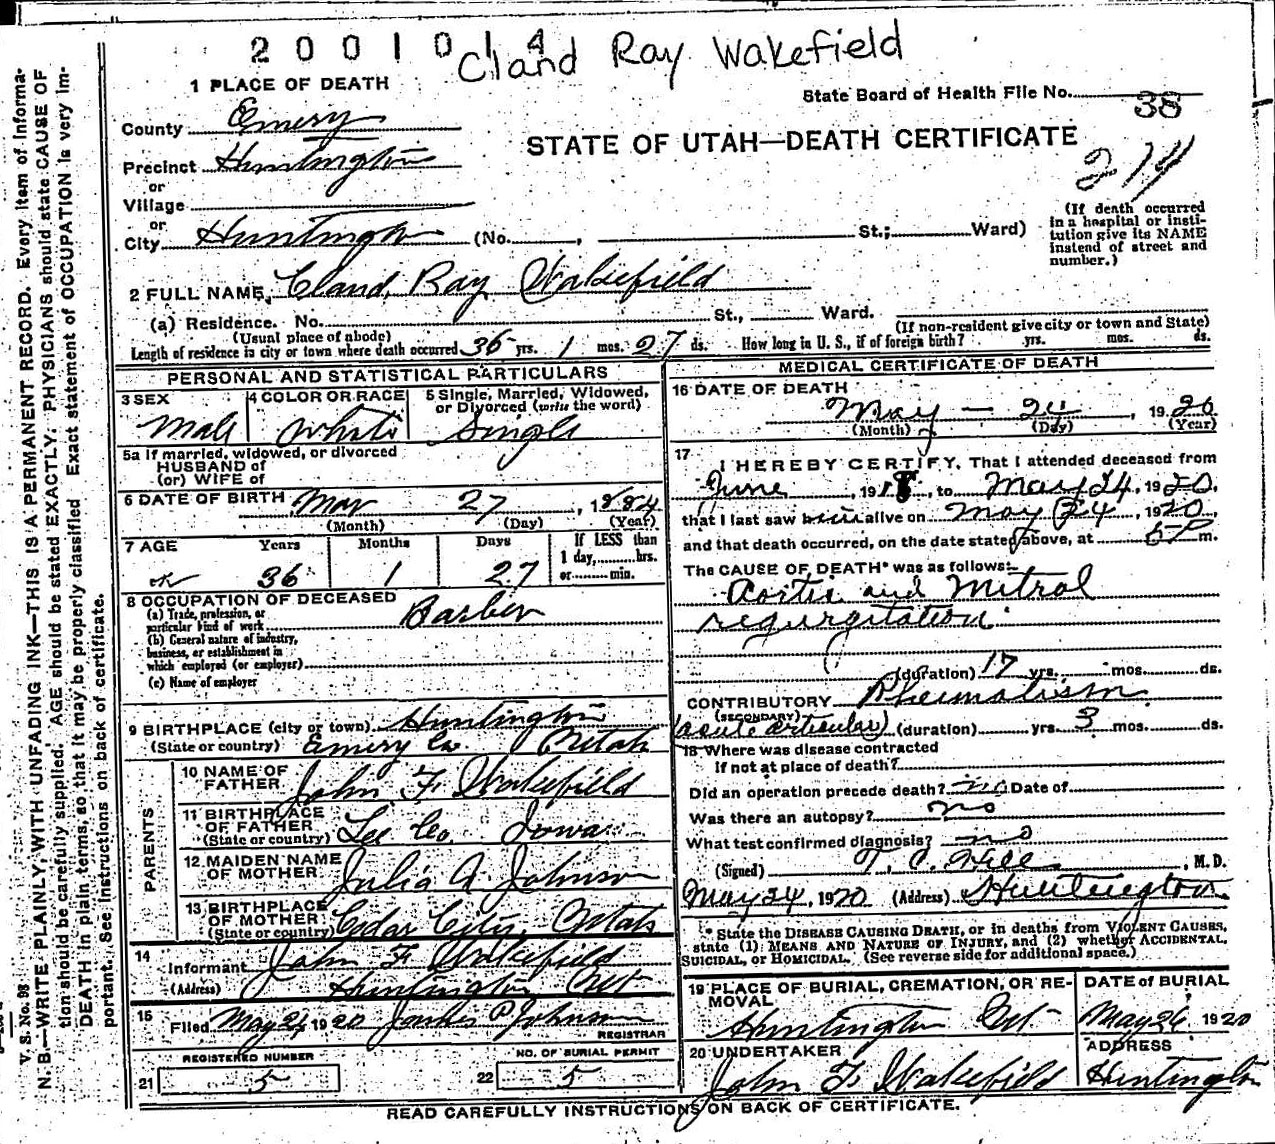 2001014
Cland Ray Wakefield
1 PLACE OF DEATH
State Board of Health File No. 38
County Emery
STATE OF UTAH—DEATH CERTIFICATE
Precinct Huntington
214
or
Village
or
City Huntington (No. , St.; Ward)
(If death occurred in a hospital or insti-
tution give its NAME
instead of street and
number.)
2 FULL NAME Cland Ray Wakefield
(a) Residence. No. St., Ward.
(Usual place of abode) (If non-resident give city or town and State)
Length of residence in city or town where death occurred 36 yrs. 1 mos. 27 ds. How long in U. S., if of foreign birth? yrs. mos. ds.
PERSONAL AND STATISTICAL PARTICULARS
3 SEX Male
4 COLOR OR RACE White
5 Single, Married, Widowed,
or Divorced (write the word)
Single
5a If married, widowed, or divorced
HUSBAND of
(or) WIFE of
6 DATE OF BIRTH Mar 27, 1884
(Month) (Day) (Year)
7 AGE Years Months Days If LESS than
1 day, hrs.
or min.
36 1 27
8 OCCUPATION OF DECEASED
(a) Trade, profession, or
particular kind of work Barber
(b) General nature of industry,
business, or establishment in
which employed (or employer)
(c) Name of employer
9 BIRTHPLACE (city or town) Huntington
(State or country) Emery Co. Utah
PARENTS
10 NAME OF
FATHER John F Wakefield
11 BIRTHPLACE
OF FATHER
(State or country) Lee Co. Iowa
12 MAIDEN NAME
OF MOTHER Julia A Johnson
13 BIRTHPLACE
OF MOTHER
(State or country) Cedar City, Utah
14
Informant John F Wakefield
(Address) Huntington Ut
15
Filed May 26, 1920 P Johnson
REGISTRAR
REGISTERED NUMBER
21 5
NO. OF BURIAL PERMIT
22 5
MEDICAL CERTIFICATE OF DEATH
16 DATE OF DEATH
May — 24, 1920
(Month) (Day) (Year)
17
I HEREBY CERTIFY, That I attended deceased from
June, 1918, to May 24, 1920,
that I last saw him alive on May 24, 1920,
and that death occurred, on the date stated above, at 5 P m.
The CAUSE OF DEATH* was as follows:
Aortic and Mitral
regurgitation
(duration) 17 yrs. mos. ds.
CONTRIBUTORY Rheumatism
(SECONDARY)
(acute articular) (duration) yrs. 3 mos. ds.
18 Where was disease contracted
If not at place of death?
Did an operation precede death? no Date of
Was there an autopsy? no
What test confirmed diagnosis? no
(Signed) T. C. Hill, M. D.
May 24, 1920 (Address) Huntington
* State the DISEASE CAUSING DEATH, or in deaths from VIOLENT CAUSES,
state (1) MEANS AND NATURE OF INJURY, and (2) whether ACCIDENTAL,
SUICIDAL, or HOMICIDAL. (See reverse side for additional space.)
19 PLACE OF BURIAL, CREMATION, OR RE-
MOVAL
Huntington Ut
DATE of BURIAL
May 26 1920
20 UNDERTAKER
John F Wakefield
ADDRESS
Huntington
READ CAREFULLY INSTRUCTIONS ON BACK OF CERTIFICATE.
V. S. No. 98
N. B.—WRITE PLAINLY, WITH UNFADING INK—THIS IS A PERMANENT RECORD. Every item of informa-
tion should be carefully supplied. AGE should be stated EXACTLY. PHYSICIANS should state CAUSE OF
DEATH in plain terms, so that it may be properly classified. Exact statement of OCCUPATION is very im-
portant. See instructions on back of certificate.